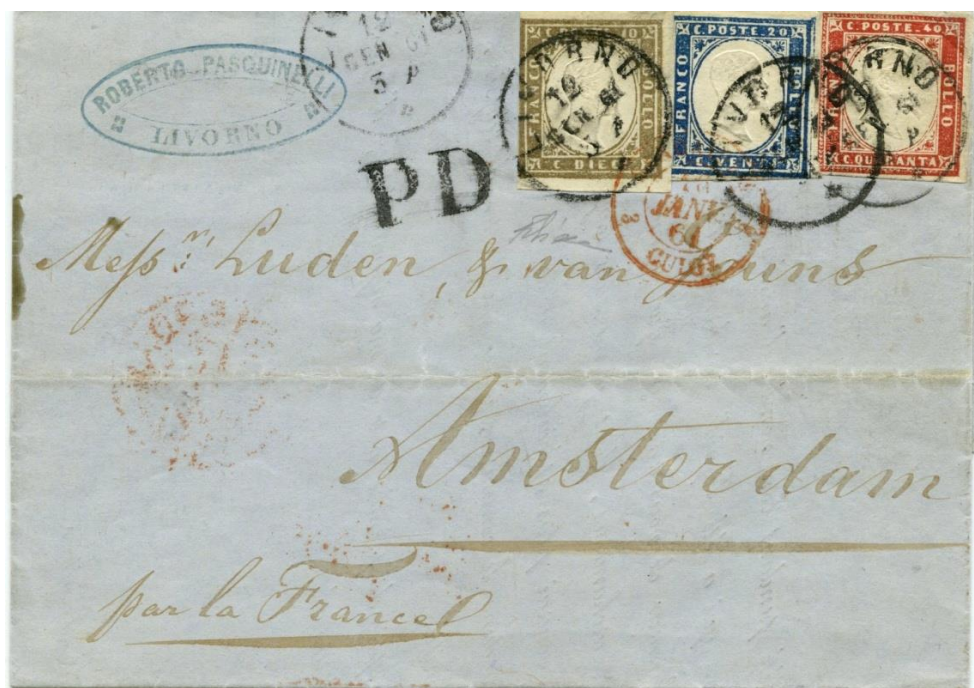 ROBERTO PASQUINELLI
LIVORNO
12
GEN 61
3 P
C. POSTE. 10
FRANCO
BOLLO
C. DIECI
C. POSTE. 20
FRANCO
BOLLO
C. VENTI
C. POSTE. 40
BOLLO
C. QUARANTA
LIVORNO
12
GEN 61
PD
JANV.
61
CULOZ
Messrs Luden & van Geuns
Amsterdam
par la France